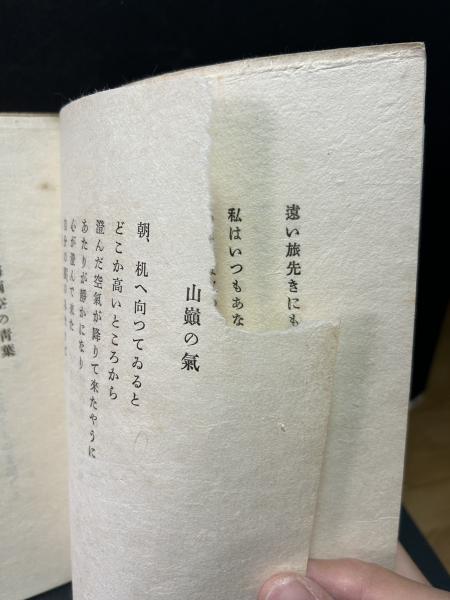 遠い旅先きにも
私はいつもあな
山巓の氣
朝、机へ向つてゐると
どこか高いところから
澄んだ空氣が降りて來たやうに
あたりが靜かになり
心が澄んで來た
の靑葉